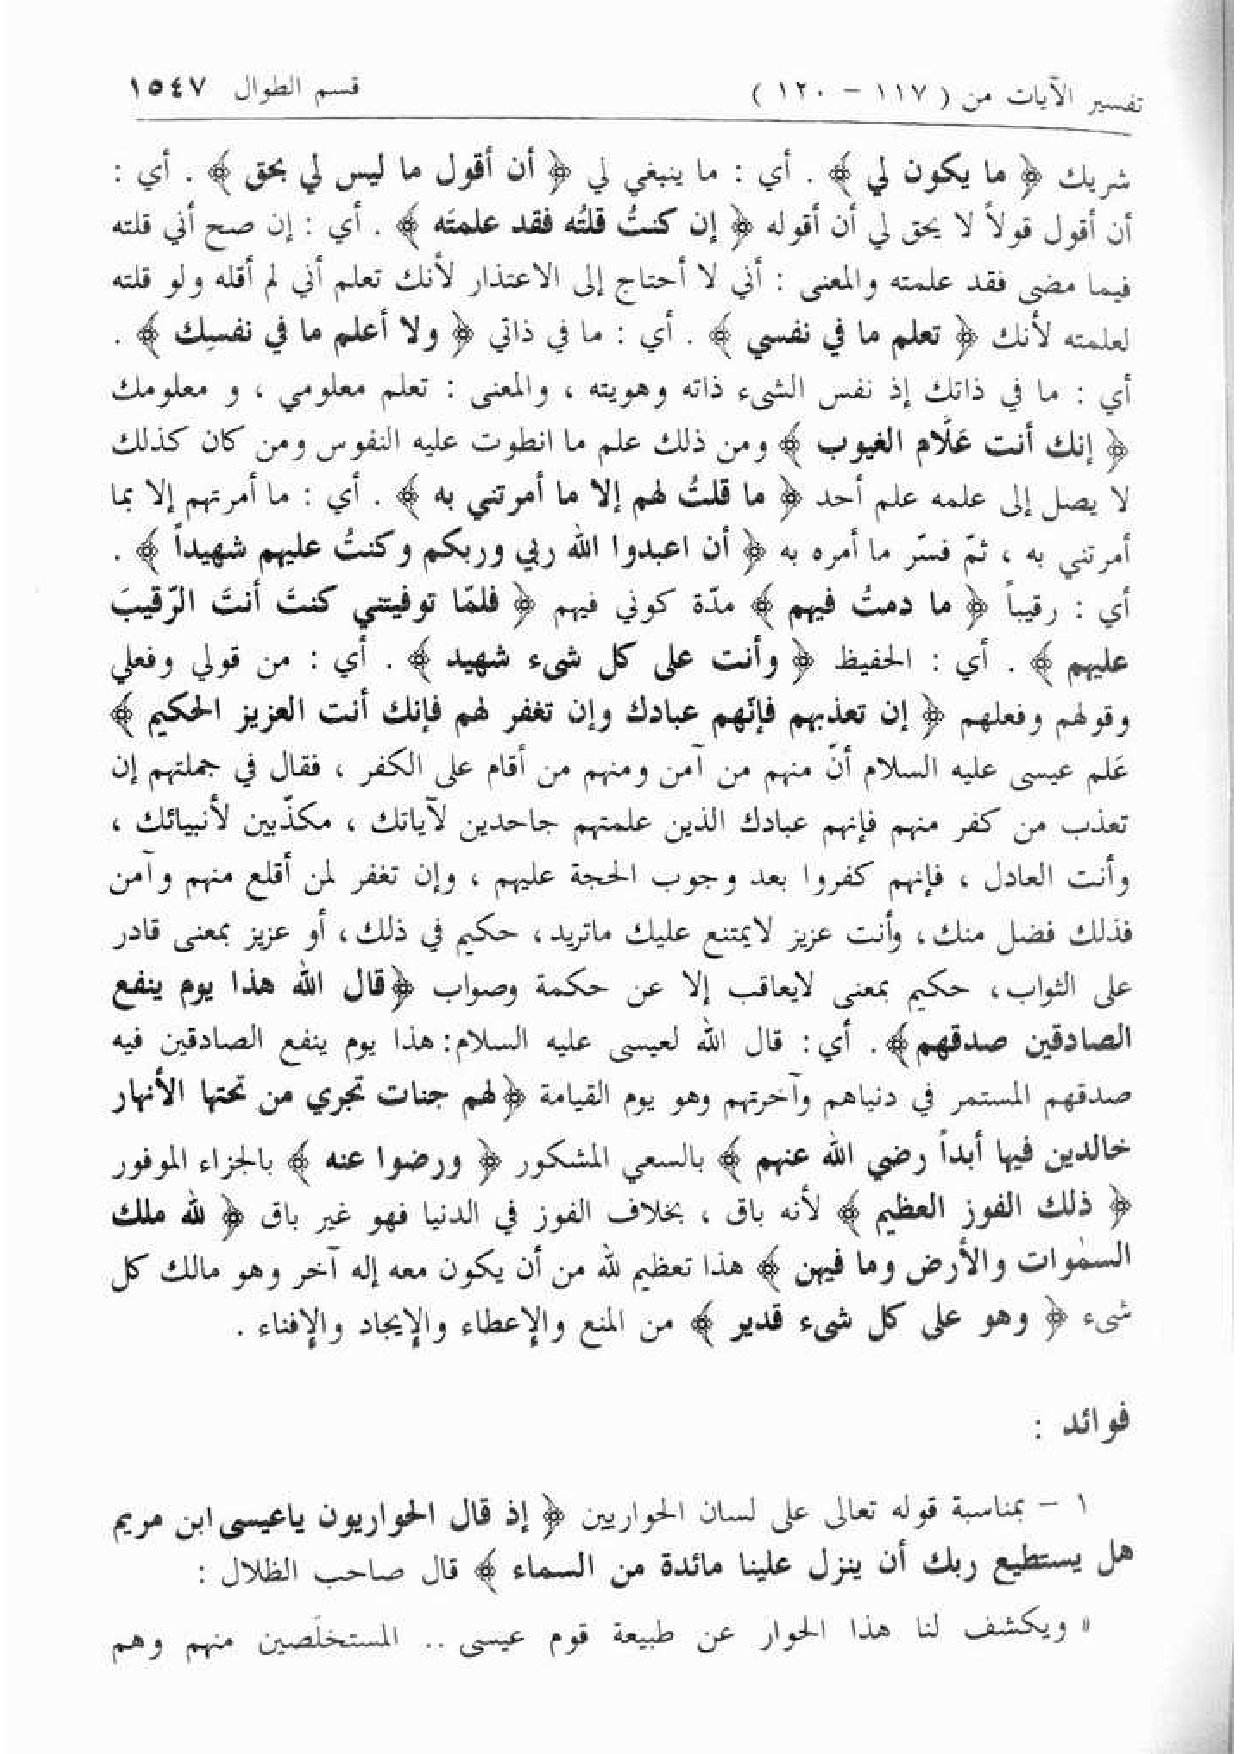 تفسير الآيات من ( ١١٧ – ١٢٠ ) قسم الطوال ١٥٤٧
شريك ﴿ ما يكون لي ﴾ . أي : ما ينبغي لي ﴿ أن أقول ما ليس لي بحق ﴾ . أي :
أن أقول قولاً لا يحق لي أن أقوله ﴿ إن كنتُ قلتُه فقد علمتَه ﴾ . أي : إن صح أني قلته
فيما مضى فقد علمته والمعنى : أني لا أحتاج إلى الاعتذار لأنك تعلم أني لم أقله ولو قلته
لعلمته لأنك ﴿ تعلم ما في نفسي ﴾ . أي : ما في ذاتي ﴿ ولا أعلم ما في نفسِك ﴾ .
أي : ما في ذاتك إذ نفس الشىء ذاته وهويته ، والمعنى : تعلم معلومي ، و معلومك
﴿ إنك أنت عَلَّام الغيوب ﴾ ومن ذلك علم ما انطوت عليه النفوس ومن كان كذلك
لا يصل إلى علمه علم أحد ﴿ ما قلتُ لهم إلا ما أمرتني به ﴾ . أي : ما أمرتهم إلا بما
أمرتني به ، ثمّ فسّر ما أمره به ﴿ أن اعبدوا الله ربي وربكم وكنتُ عليهم شهيداً ﴾ .
أي : رقيباً ﴿ ما دمتُ فيهم ﴾ مدّة كوني فيهم ﴿ فلمّا توفيتني كنتَ أنتَ الرّقيبَ
عليهم ﴾ . أي : الحفيظ ﴿ وأنت على كل شىء شهيد ﴾ . أي : من قولي وفعلي
وقولهم وفعلهم ﴿ إن تعذبهم فإنّهم عبادك وإن تغفر لهم فإنك أنت العزيز الحكيم ﴾
عَلم عيسى عليه السلام أنّ منهم من آمن ومنهم من أقام على الكفر ، فقال في جملتهم إن
تعذب من كفر منهم فإنهم عبادك الذين علمتهم جاحدين لآياتك ، مكذّبين لأنبيائك ،
وأنت العادل ، فإنهم كفروا بعد وجوب الحجة عليهم ، وإن تغفر لمن أقلع منهم وآمن
فذلك فضل منك، وأنت عزيز لايمتنع عليك ماتريد، حكيم في ذلك، أو عزيز بمعنى قادر
على الثواب، حكيم بمعنى لايعاقب إلا عن حكمة وصواب ﴿قال الله هذا يوم ينفع
الصادقين صدقهم﴾. أي: قال الله لعيسى عليه السلام: هذا يوم ينفع الصادقين فيه
صدقهم المستمر في دنياهم وآخرتهم وهو يوم القيامة ﴿لهم جنات تجري من تحتها الأنهار
خالدين فيها أبداً رضي الله عنهم ﴾ بالسعي المشكور ﴿ ورضوا عنه ﴾ بالجزاء الموفور
﴿ ذلك الفوز العظيم ﴾ لأنه باق ، بخلاف الفوز في الدنيا فهو غير باق ﴿ لله ملك
السمٰوات والأرض وما فيهن ﴾ هذا تعظيم لله من أن يكون معه إله آخر وهو مالك كل
شىء ﴿ وهو على كل شىء قدير ﴾ من المنع والإعطاء والإيجاد والإفناء .
فوائد :
١ – بمناسبة قوله تعالى على لسان الحواريين ﴿ إذ قال الحواريون ياعيسى ابن مريم
هل يستطيع ربك أن ينزل علينا مائدة من السماء ﴾ قال صاحب الظلال :
« ويكشف لنا هذا الحوار عن طبيعة قوم عيسى .. المستخلَصين منهم وهم